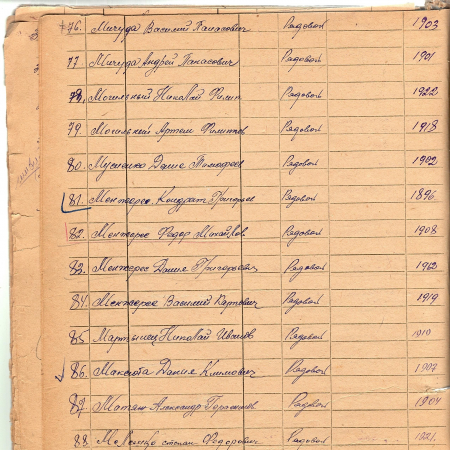 76. Мичуда Василий Панасович Рядовой 1903
77 Мичуда Андрей Панасович Рядовой 1901
78. Могильный Николай Филип Рядовой 1922
79. Могильный Артем Филиппов Рядовой 1918
80. Мусиенко Дание Тимофеев Рядовой 1902
81. Менжерес. Кондрат Григорьев Рядовой 1896
82. Менжерес Федор Михайлов. Рядовой 1908
83. Менжерес Дание Григорьевич Рядовой
84. Менжерес Василий Карпович Рядовой 1919
85 Мартынец Николай Иванов Рядовой 1910
86. Дание Климович Рядовой 1907
87. Александр Рядовой 1904
88 степан Федорович Рядовой 1921.